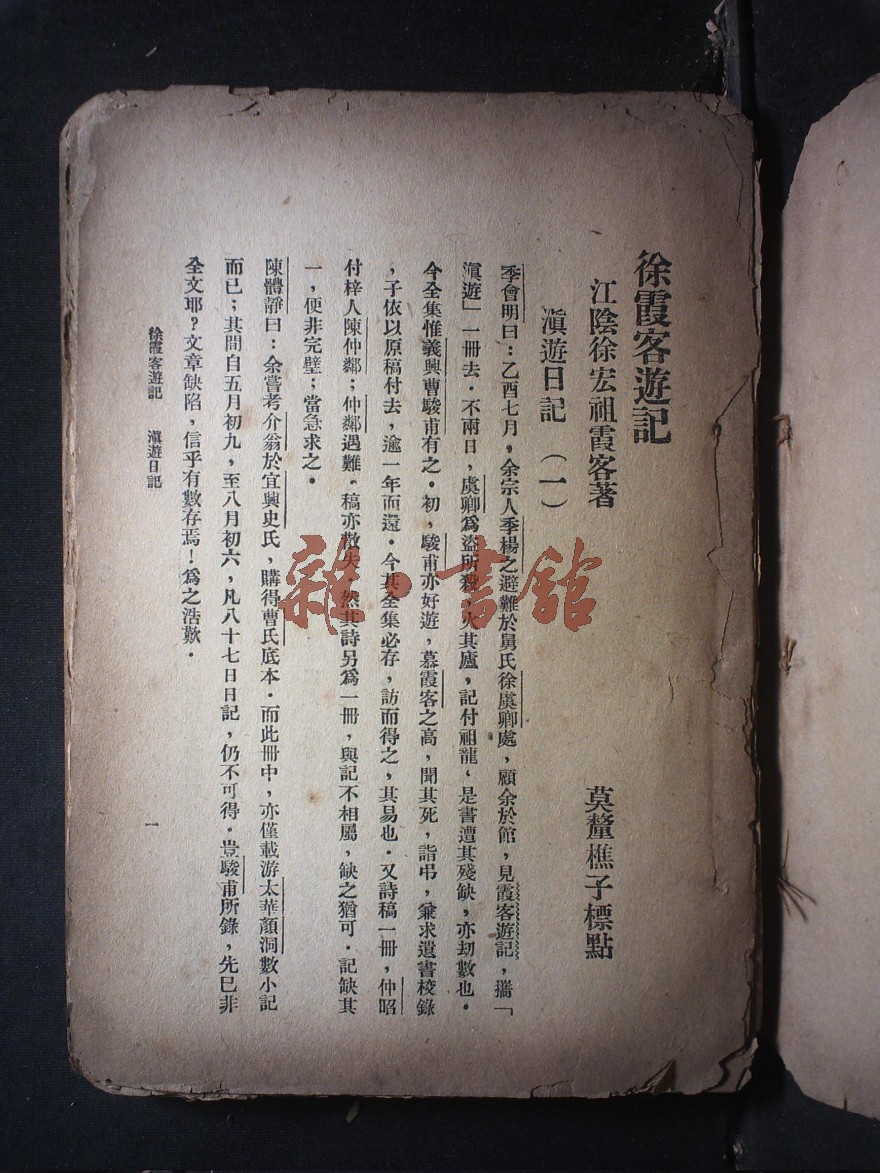 徐霞客遊記
江陰徐宏祖霞客著
莫釐樵子標點
滇遊日記(一)
季會明曰：乙酉七月，余宗人季楊之避難於舅氏徐虞卿處，顧余於館，見霞客遊記，攜「
滇遊」一冊去．不兩日，虞卿爲盜所殺，火其廬，記付祖龍．是書遭其殘缺，亦劫數也．
今全集惟義興曹駿甫有之．初，駿甫亦好遊，慕霞客之高，聞其死，詣弔，兼求遺書校錄
，子依以原稿付去，逾一年而還．今其全集必存，訪而得之，其易也．又詩稿一冊，仲昭
付梓人陳仲鄰；仲鄰遇難．稿亦散失，然其詩另爲一冊，與記不相屬，缺之猶可．記缺其
一，便非完璧；當急求之．
陳體靜曰：余嘗考介翁於宜興史氏，購得曹氏底本．而此冊中，亦僅載游太華顏洞數小記
而已；其間自五月初九，至八月初六，凡八十七日日記，仍不可得．豈駿甫所錄，先已非
全文耶？文章缺陷，信乎有數存焉！爲之浩歎．
徐霞客遊記　滇遊日記
一
雜·書館